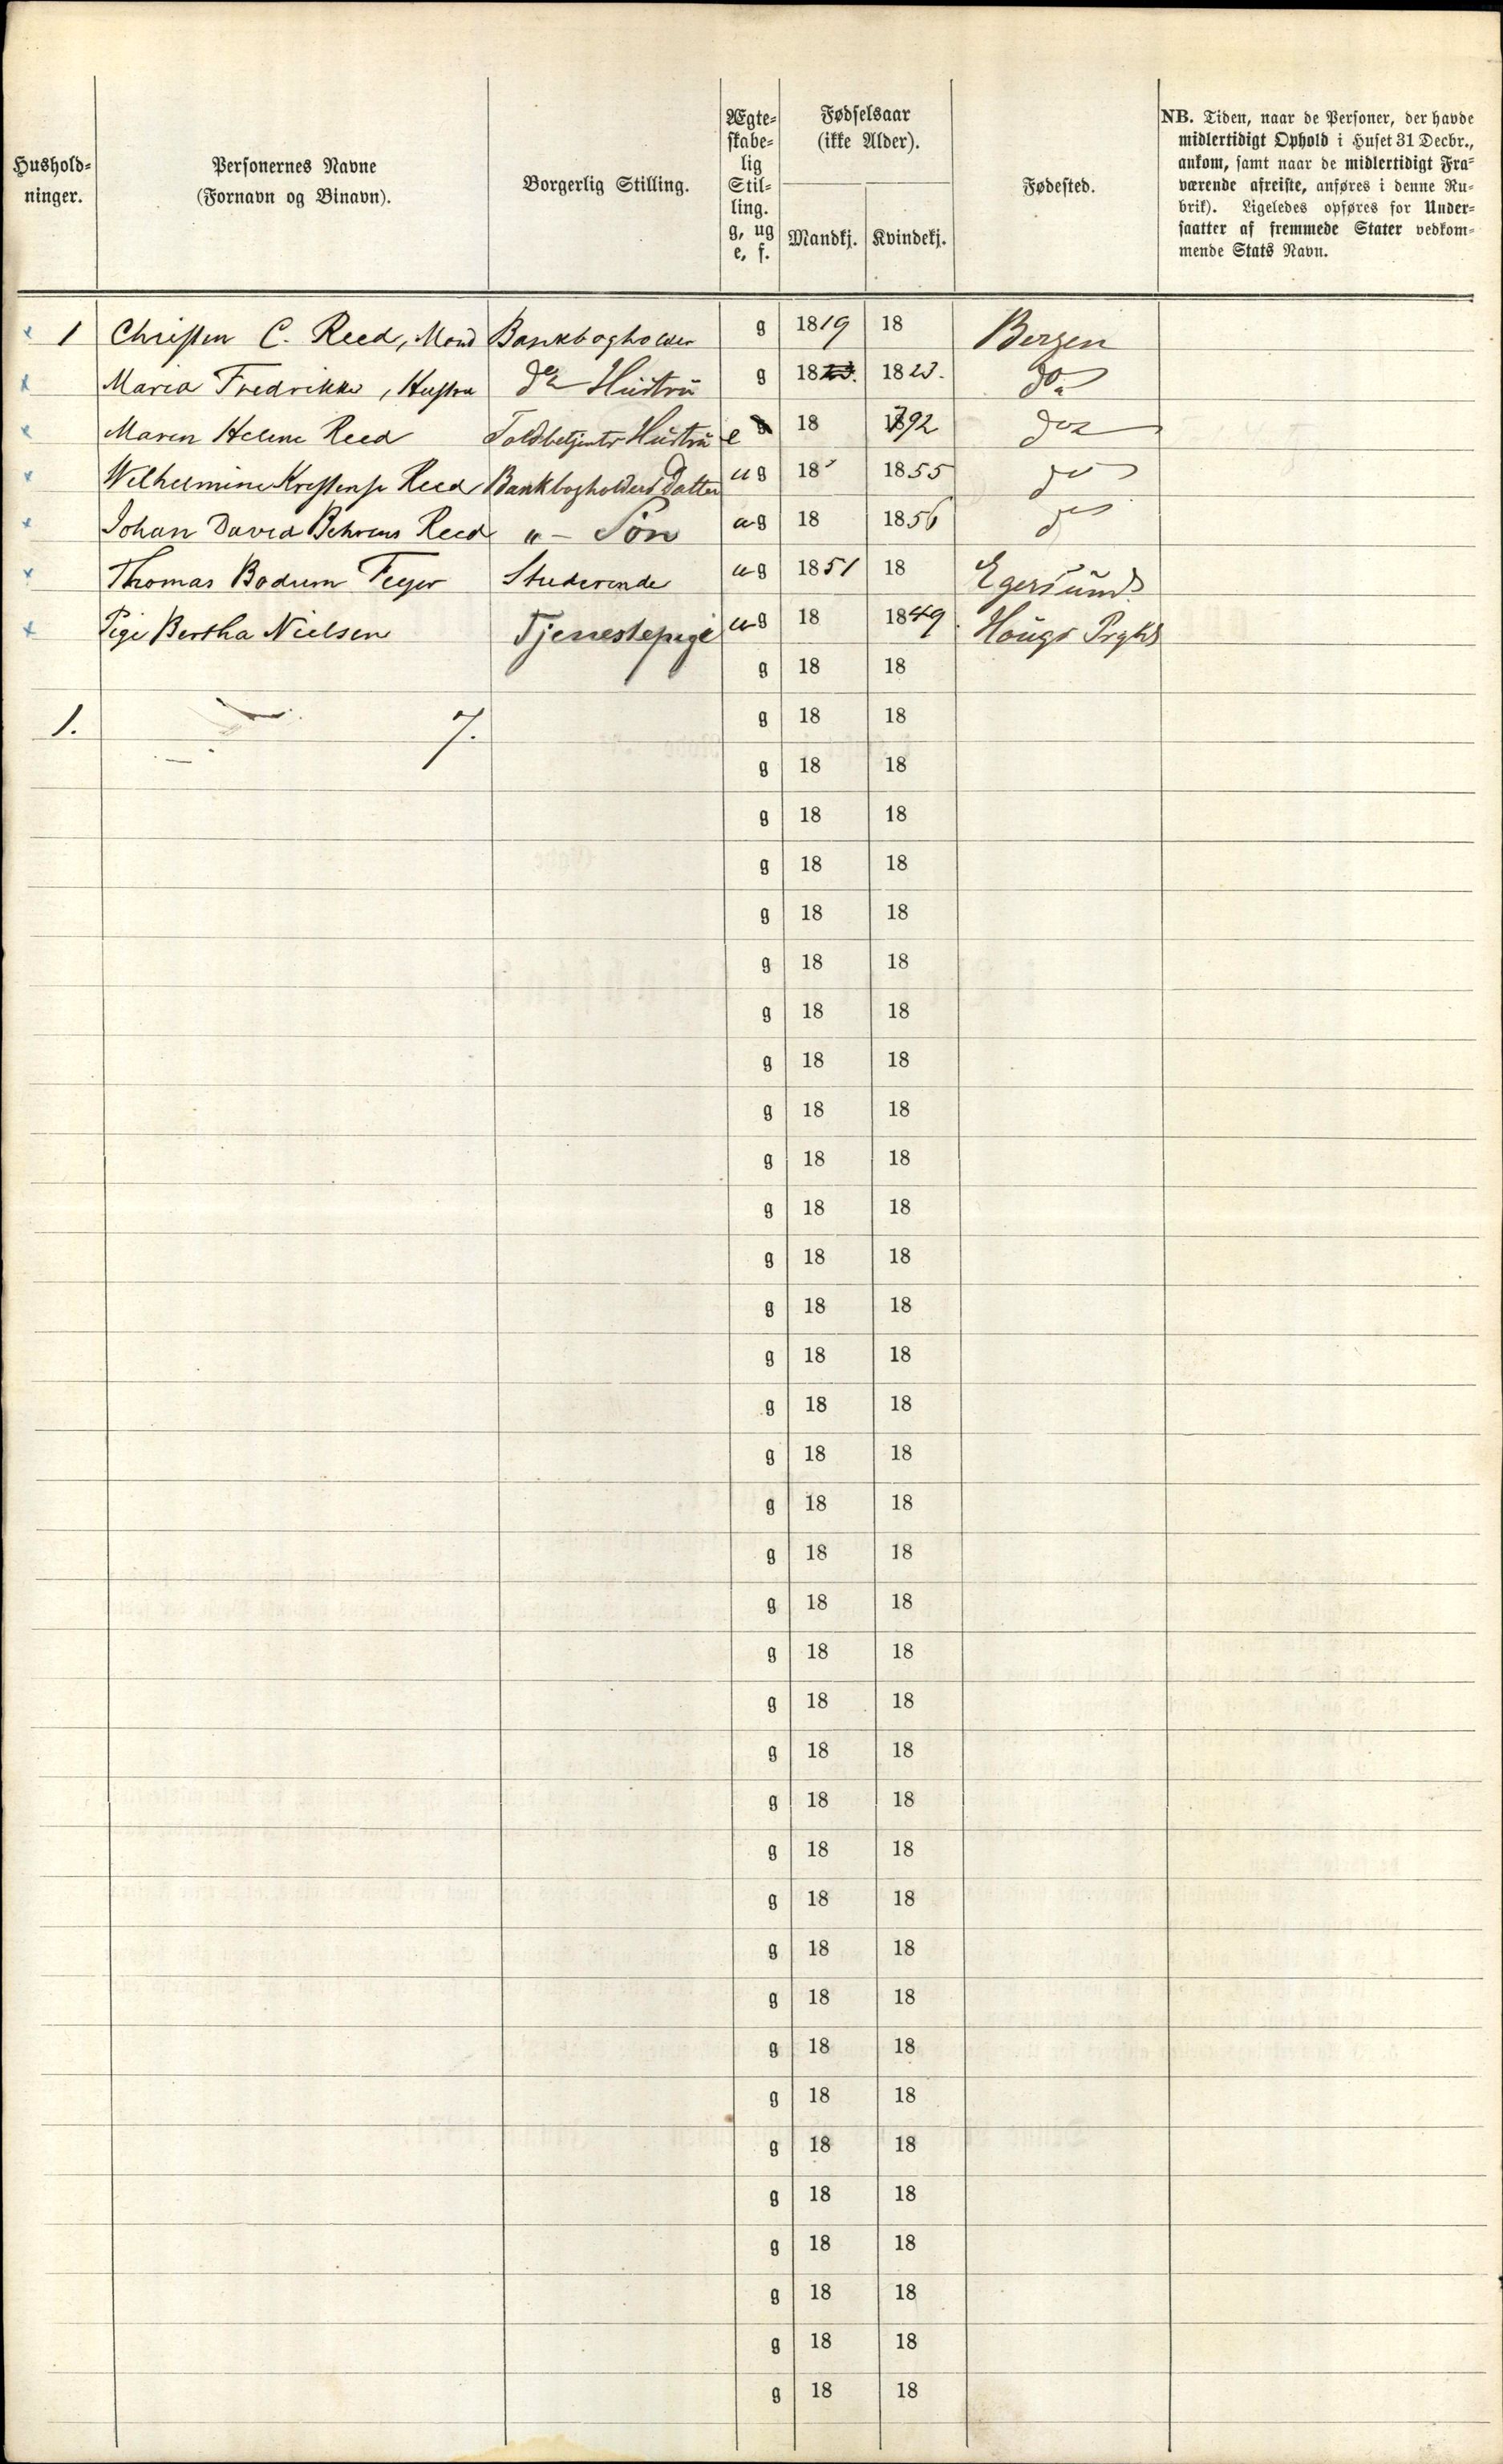 Hushold-
ninger.
Personernes Navne
(Fornavn og Binavn).
Borgerlig Stilling.
Ægte-
skabe-
lig
Stil-
ling.
g, ug
e, f.
Fødselsaar
(ikke Alder).
Mandkj. Kvindekj.
Fødested.
NB. Tiden, naar de Personer, der havde
midlertidigt Ophold i Huset 31 Decbr.,
ankom, samt naar de midlertidigt Fra-
værende afreiste, anføres i denne Ru-
brik). Ligeledes opføres for Under-
saatter af fremmede Stater vedkom-
mende Stats Navn.
x 1 Christen C. Reed, Mand Bankbogholder g 1819 18 Bergen
x Maria Fredrikke, Hustru do Hustru g 1823. 1823. do
x Maren Helene Reed Toldbetjents Hustru e 18 1792 do
x Wilhelmine Krestense Reed Bankbogholders Datter ug 18 1855 do
x Johan David Behrens Reed " - Søn ug 18 1856 do
x Thomas Bodum Feyer Studerende ug 1851 18 Egersund
x Pige Bertha Nielsen Tjenestepige ug 18 1849 Hougs Prgkd
g 18 18
1. 7. g 18 18
g 18 18
g 18 18
g 18 18
g 18 18
g 18 18
g 18 18
g 18 18
g 18 18
g 18 18
g 18 18
g 18 18
g 18 18
g 18 18
g 18 18
g 18 18
g 18 18
g 18 18
g 18 18
g 18 18
g 18 18
g 18 18
g 18 18
g 18 18
g 18 18
g 18 18
g 18 18
g 18 18
g 18 18
g 18 18
g 18 18
g 18 18
g 18 18
g 18 18
g 18 18